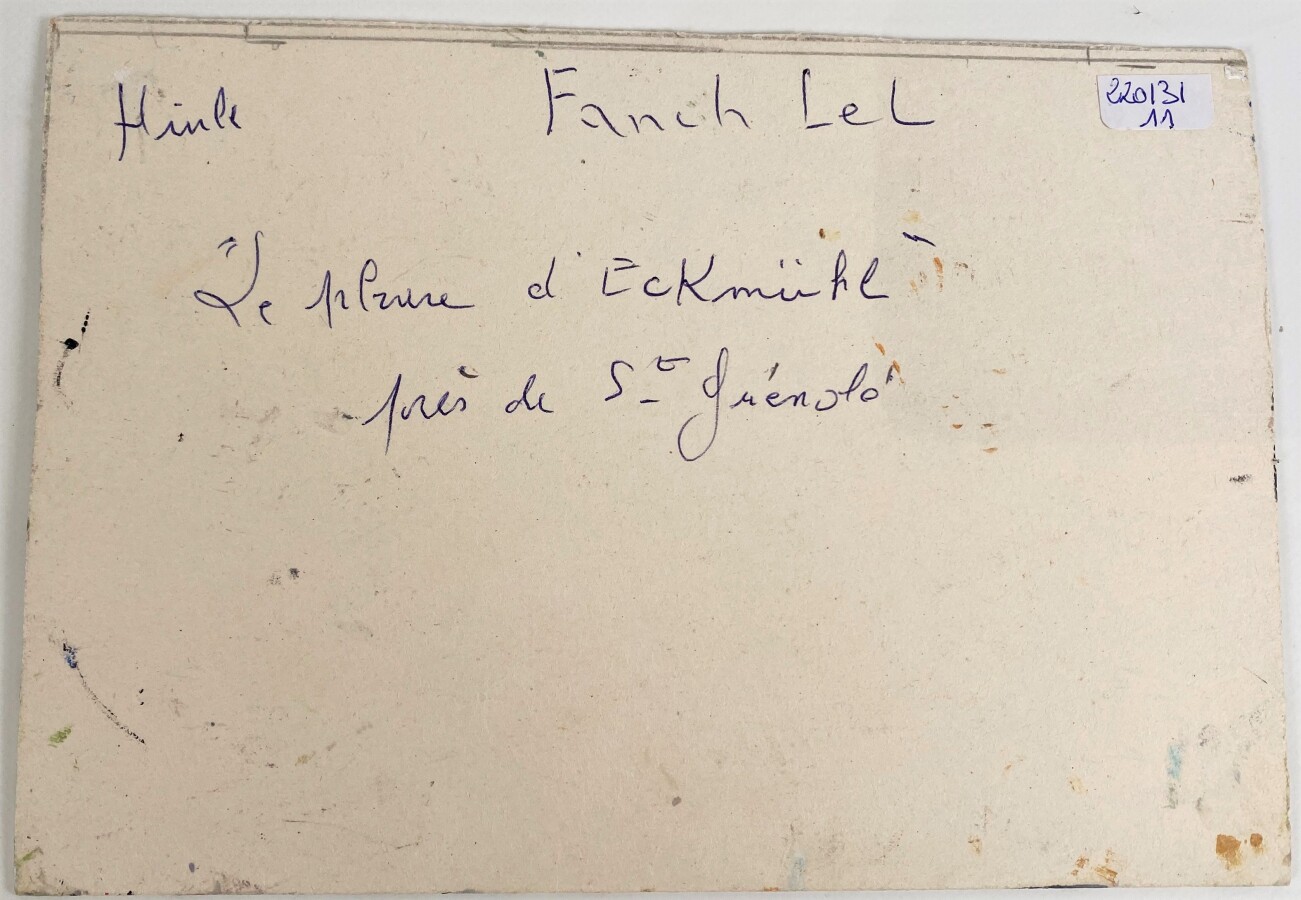 Huile Fanch Lel 220131
11
"Le phare d'Eckmühl"
près de St Guénolé